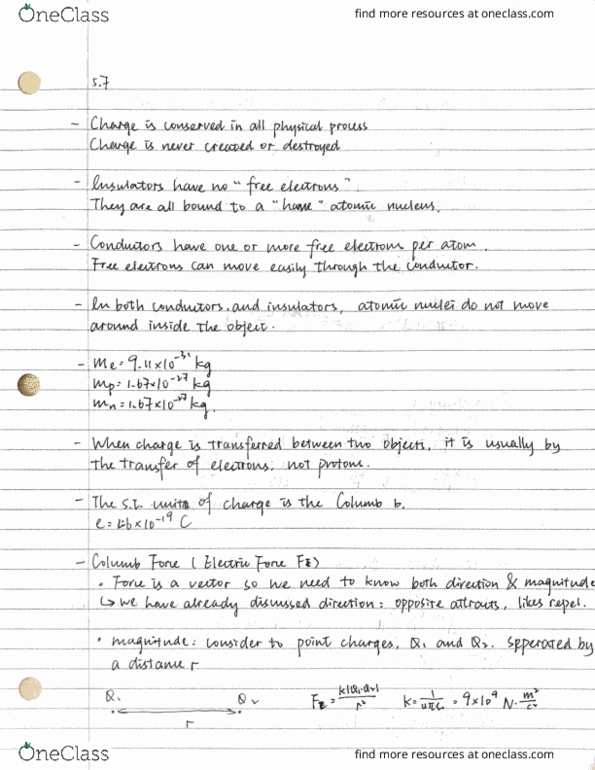 OneClass
find more resources at oneclass.com
5.7
- Charge is conserved in all physical process
Charge is never created or destroyed
- Insulators have no "free electrons".
They are all bound to a "home" atomic nucleus.
- Conductors have one or more free electrons per atom.
Free electrons can move easily through the conductor.
- In both conductors, and insulators, atomic nuclei do not move
around inside the object.
- me = 9.11×10⁻³¹ kg
mp = 1.67×10⁻²⁷ kg
mn = 1.67×10⁻²⁷ kg.
- When charge is transferred between two objects, it is usually by
the transfer of electrons, not protons.
- The S.I. units of charge is the Columb
e = 1.6×10⁻¹⁹ C
- Columb Force (Electric Force FE)
• Force is a vector so we need to know both direction & magnitude
↳ we have already discussed direction: opposite attracts, likes repel.
• magnitude: consider to point charges, Q₁ and Q₂. Spperated by
a distance r
Q₁ Q₂ FE = k|Q₁·Q₂|/r² k = 1/4πε₀ = 9×10⁹ N·m²/c²
r
OneClass
find more resources at oneclass.com